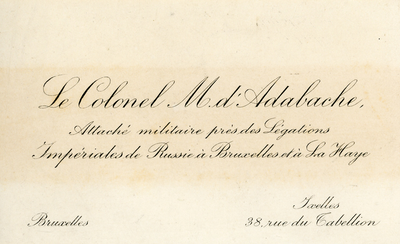 Le Colonel M. d'Adabache,
Attaché militaire près des Légations
Impériales de Russie à Bruxelles et à La Haye
Ixelles
Bruxelles 38, rue du Tabellion